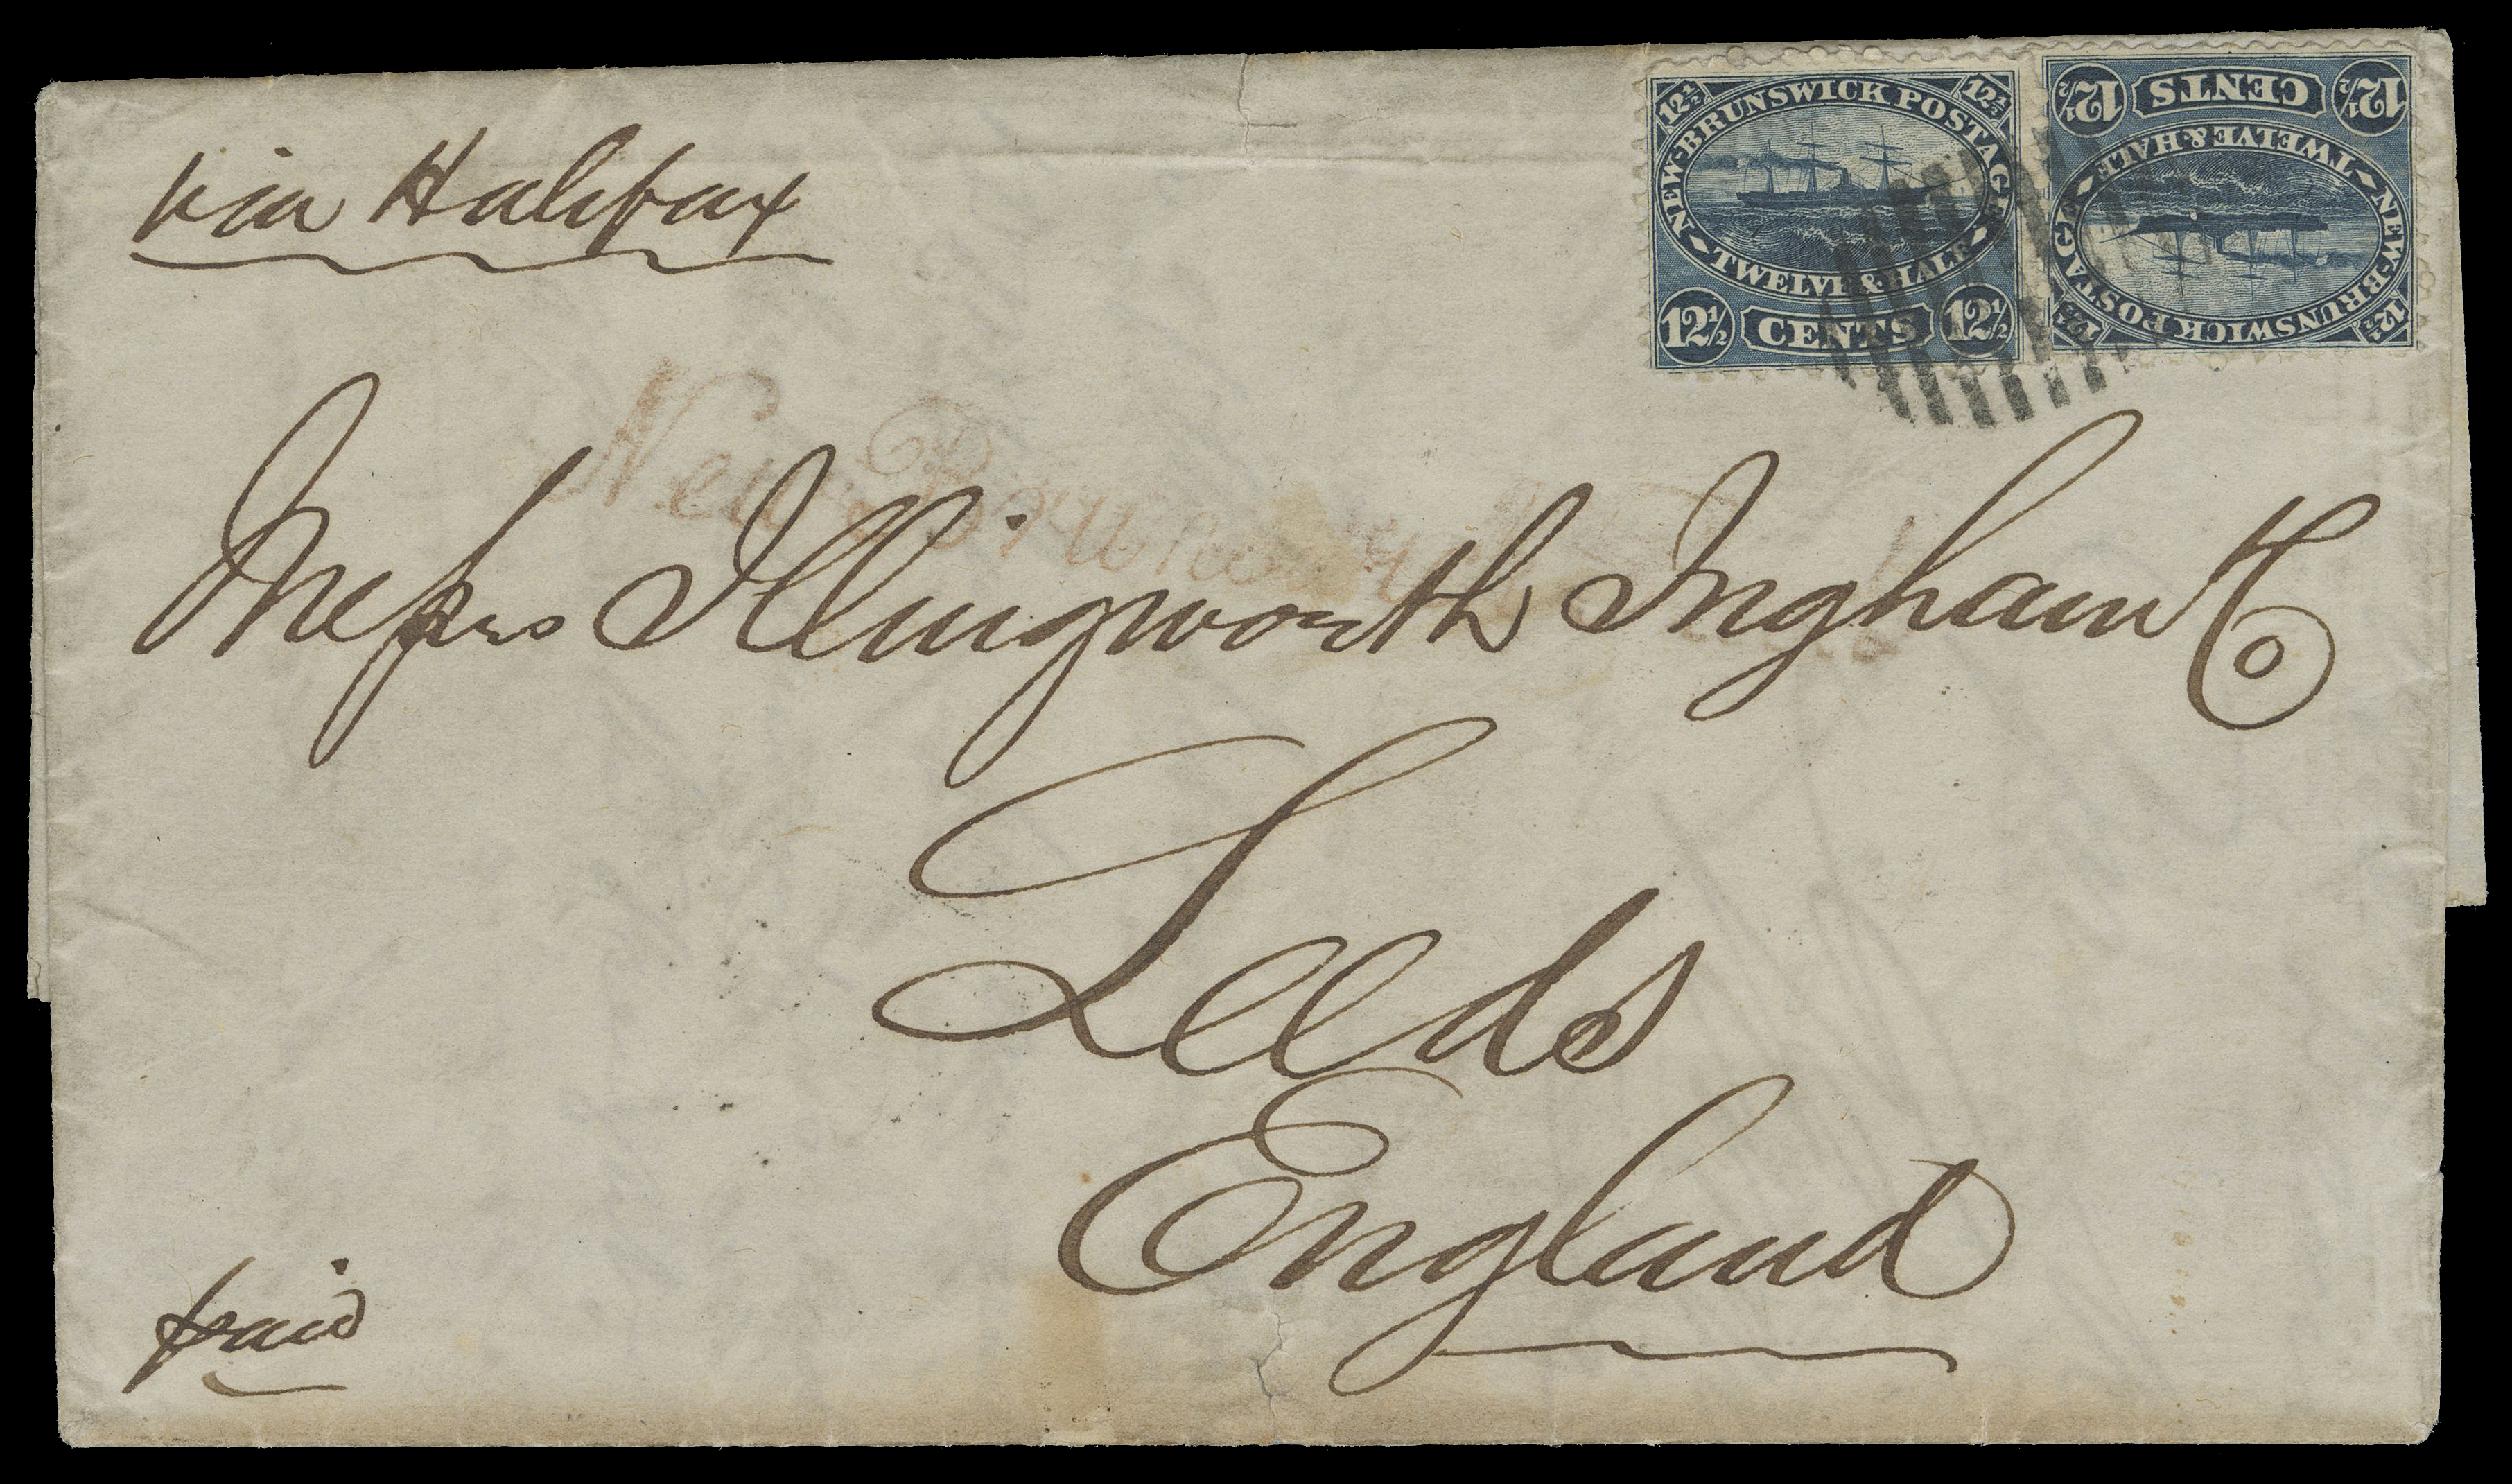 via Halifax
12½ NEW-BRUNSWICK POSTAGE 12½
TWELVE & HALF
12½ CENTS 12½
12½ NEW-BRUNSWICK POSTAGE 12½
TWELVE & HALF
12½ CENTS 12½
New Brunswick
Messrs Illingworth Ingham & Co
Leeds
England
paid